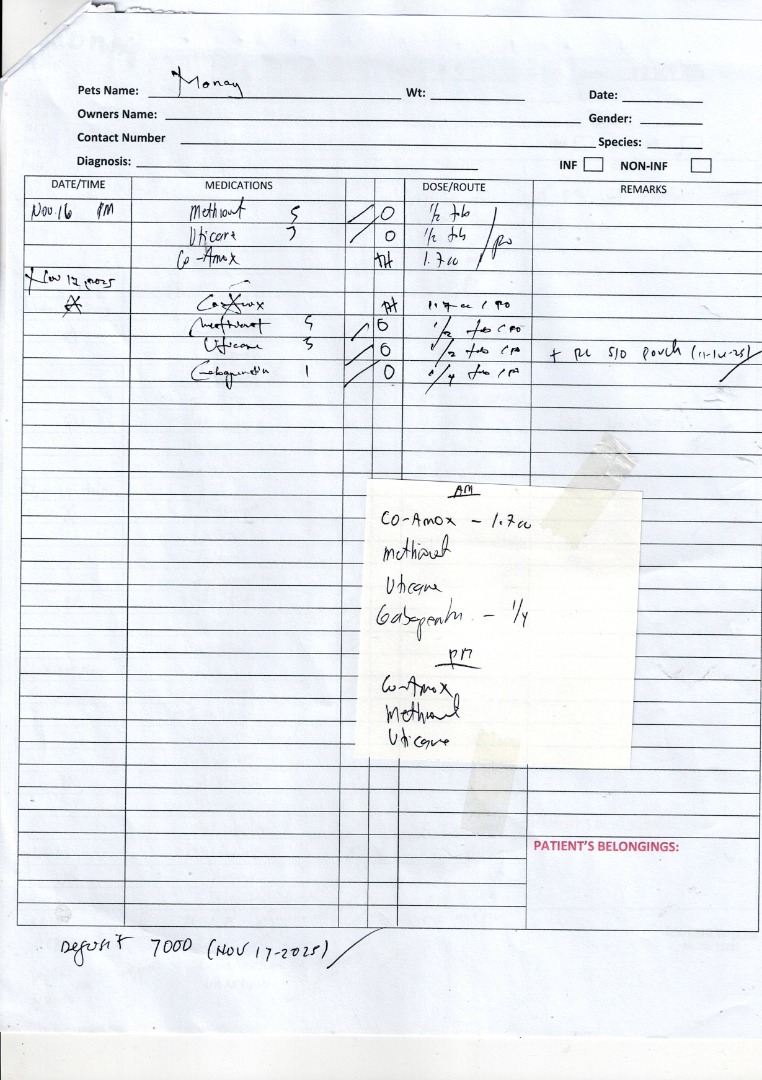 Pets Name: Monay Wt: Date:
Owners Name: Gender:
Contact Number Species:
Diagnosis: INF NON-INF
DATE/TIME MEDICATIONS DOSE/ROUTE REMARKS
Nov. 16 PM Methiovet 5 O 1/2 tab
Uticare 3 O 1/2 tab PO
Co-Amox 1.7 cc
Nov 17, 2025
Co-Amox 1.7 cc / PO
Methiovet 5 O 1/2 tab / PO
Uticare 3 O 1/2 tab / PO + RC S/O Pouch
Gabapentin 1 O 1/4 tab / PO
AM
CO-AMOX - 1.7 cc
Methiovet
Uticare
Gabapentin - 1/4
PM
Co-Amox
Methiovet
Uticare
PATIENT'S BELONGINGS:
Deposit 7000 (NOV 17-2025)